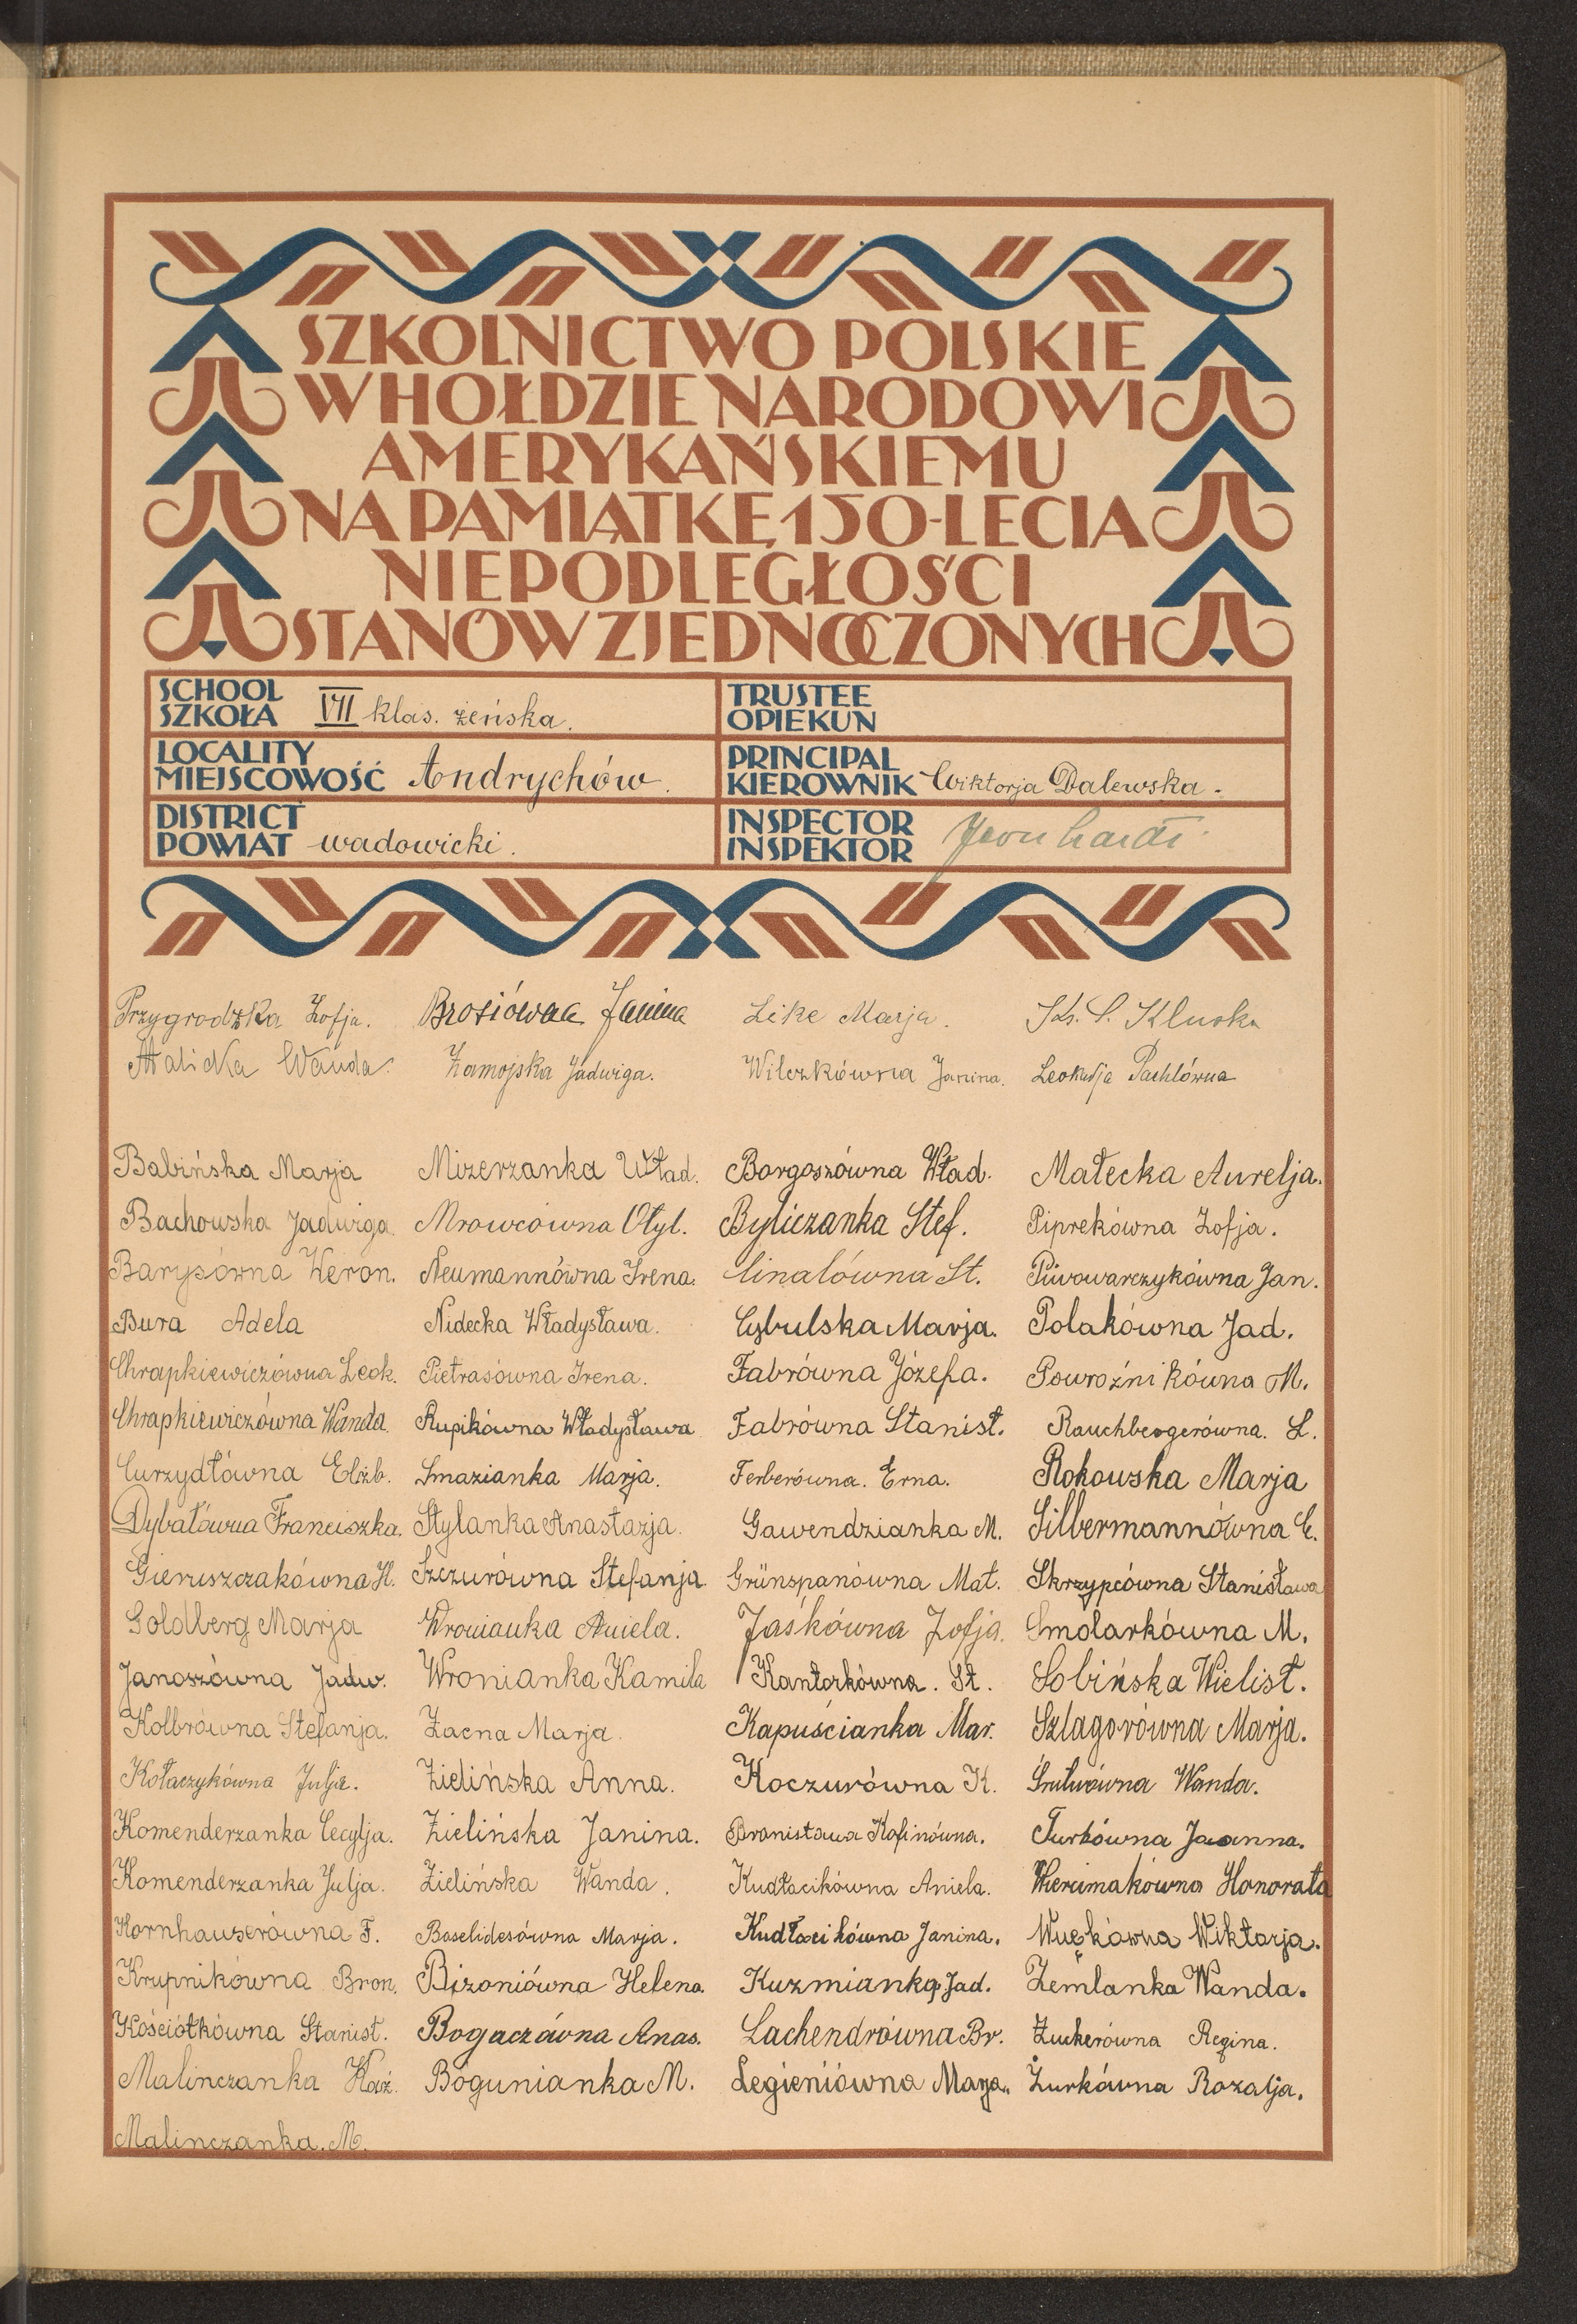 SZKOLNICTWO POLSKIE
W HOŁDZIE NARODOWI
AMERYKAŃSKIEMU
NA PAMIĄTKĘ 150-LECIA
NIEPODLEGŁOŚCI
STANÓW ZJEDNOCZONYCH
SCHOOL
SZKOŁA VII klas. żeńska.
TRUSTEE
OPIEKUN
LOCALITY
MIEJSCOWOŚĆ Andrychów.
PRINCIPAL
KIEROWNIK Wiktorja Dalewska.
DISTRICT
POWIAT wadowicki.
INSPECTOR
INSPEKTOR
Przygrodzka Zofja. Brosiówna Janina Like Marja. Ks. S. Kluska
Malicka Wanda. Zamojska Jadwiga. Wilczkówna Janina. Leokadja Pachlówna
Babińska Marja Mizerzanka Wład. Bargoszówna Wład. Małecka Aurelja.
Bachowska Jadwiga. Mrowcówna Otyl. Byliczanka Stef. Piprekówna Zofja.
Barysówna Weron. Neumannówna Irena. Cinalówna St. Piwowarczykówna Jan.
Bura Adela Nidecka Władysława. Cybulska Marja. Polakówna Jad.
Chrapkiewiczówna Leok. Pietrasówna Irena. Fabrówna Józefa. Powroźnikówna M.
Chrapkiewiczówna Wanda. Rupikówna Władysława Fabrówna Stanisł. Rauchbergerówna. L.
Curzydłówna Elżb. Smazianka Marja. Ferberówna. Erna. Rokowska Marja
Dybałówna Franciszka. Stylanka Anastazja. Gawendzianka M. Silbermannówna E.
Gieruszczakówna H. Szczurówna Stefanja. Grünspanówna Mat. Skrzypcówna Stanisława
Goldberg Marja Wronianka Aniela. Jaśkówna Zofja. Smolarkówna M.
Janoszówna Jadw. Wronianka Kamila Kantorkówna. St. Sobińska Wielist.
Kolbrówna Stefanja. Zacna Marja. Kapuścianka Mar. Szlagorówna Marja.
Kołaczykówna Julja. Zielińska Anna. Koczurówna K. Wanda.
Komenderzanka Cecylja. Zielińska Janina. Bronisława Kofinówna. Turkówna Joanna.
Komenderzanka Julja. Zielińska Wanda. Kudłacikówna Aniela. Wiercimakówna Honorata
Kornhauserówna F. Baselidesówna Marja. Kudłacikówna Janina. Wiktorja.
Krupnikówna Bron. Bizoniówna Helena. Kuzmianka Jad. Zemlanka Wanda.
Kościółkówna Stanisł. Bogaczówna Anas. Lachendrówna Br. Zuckerówna Regina.
Malinczanka Kaź. Bogunianka M. Legieniówna Marja. Żurkówna Rozalja.
Malinczanka. M.